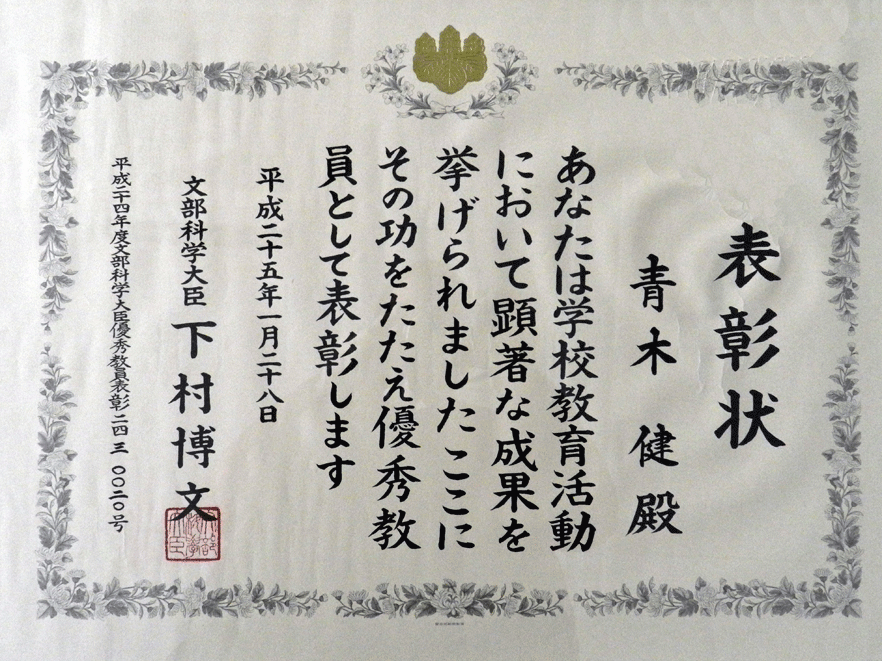 表彰状
青木 健 殿
あなたは学校教育活動
において顕著な成果を
挙げられましたここに
その功をたたえ優秀教
員として表彰します
平成二十五年一月二十八日
文部科学大臣 下村博文
平成二十四年度文部科学大臣優秀教員表彰二四 三 〇〇二〇号